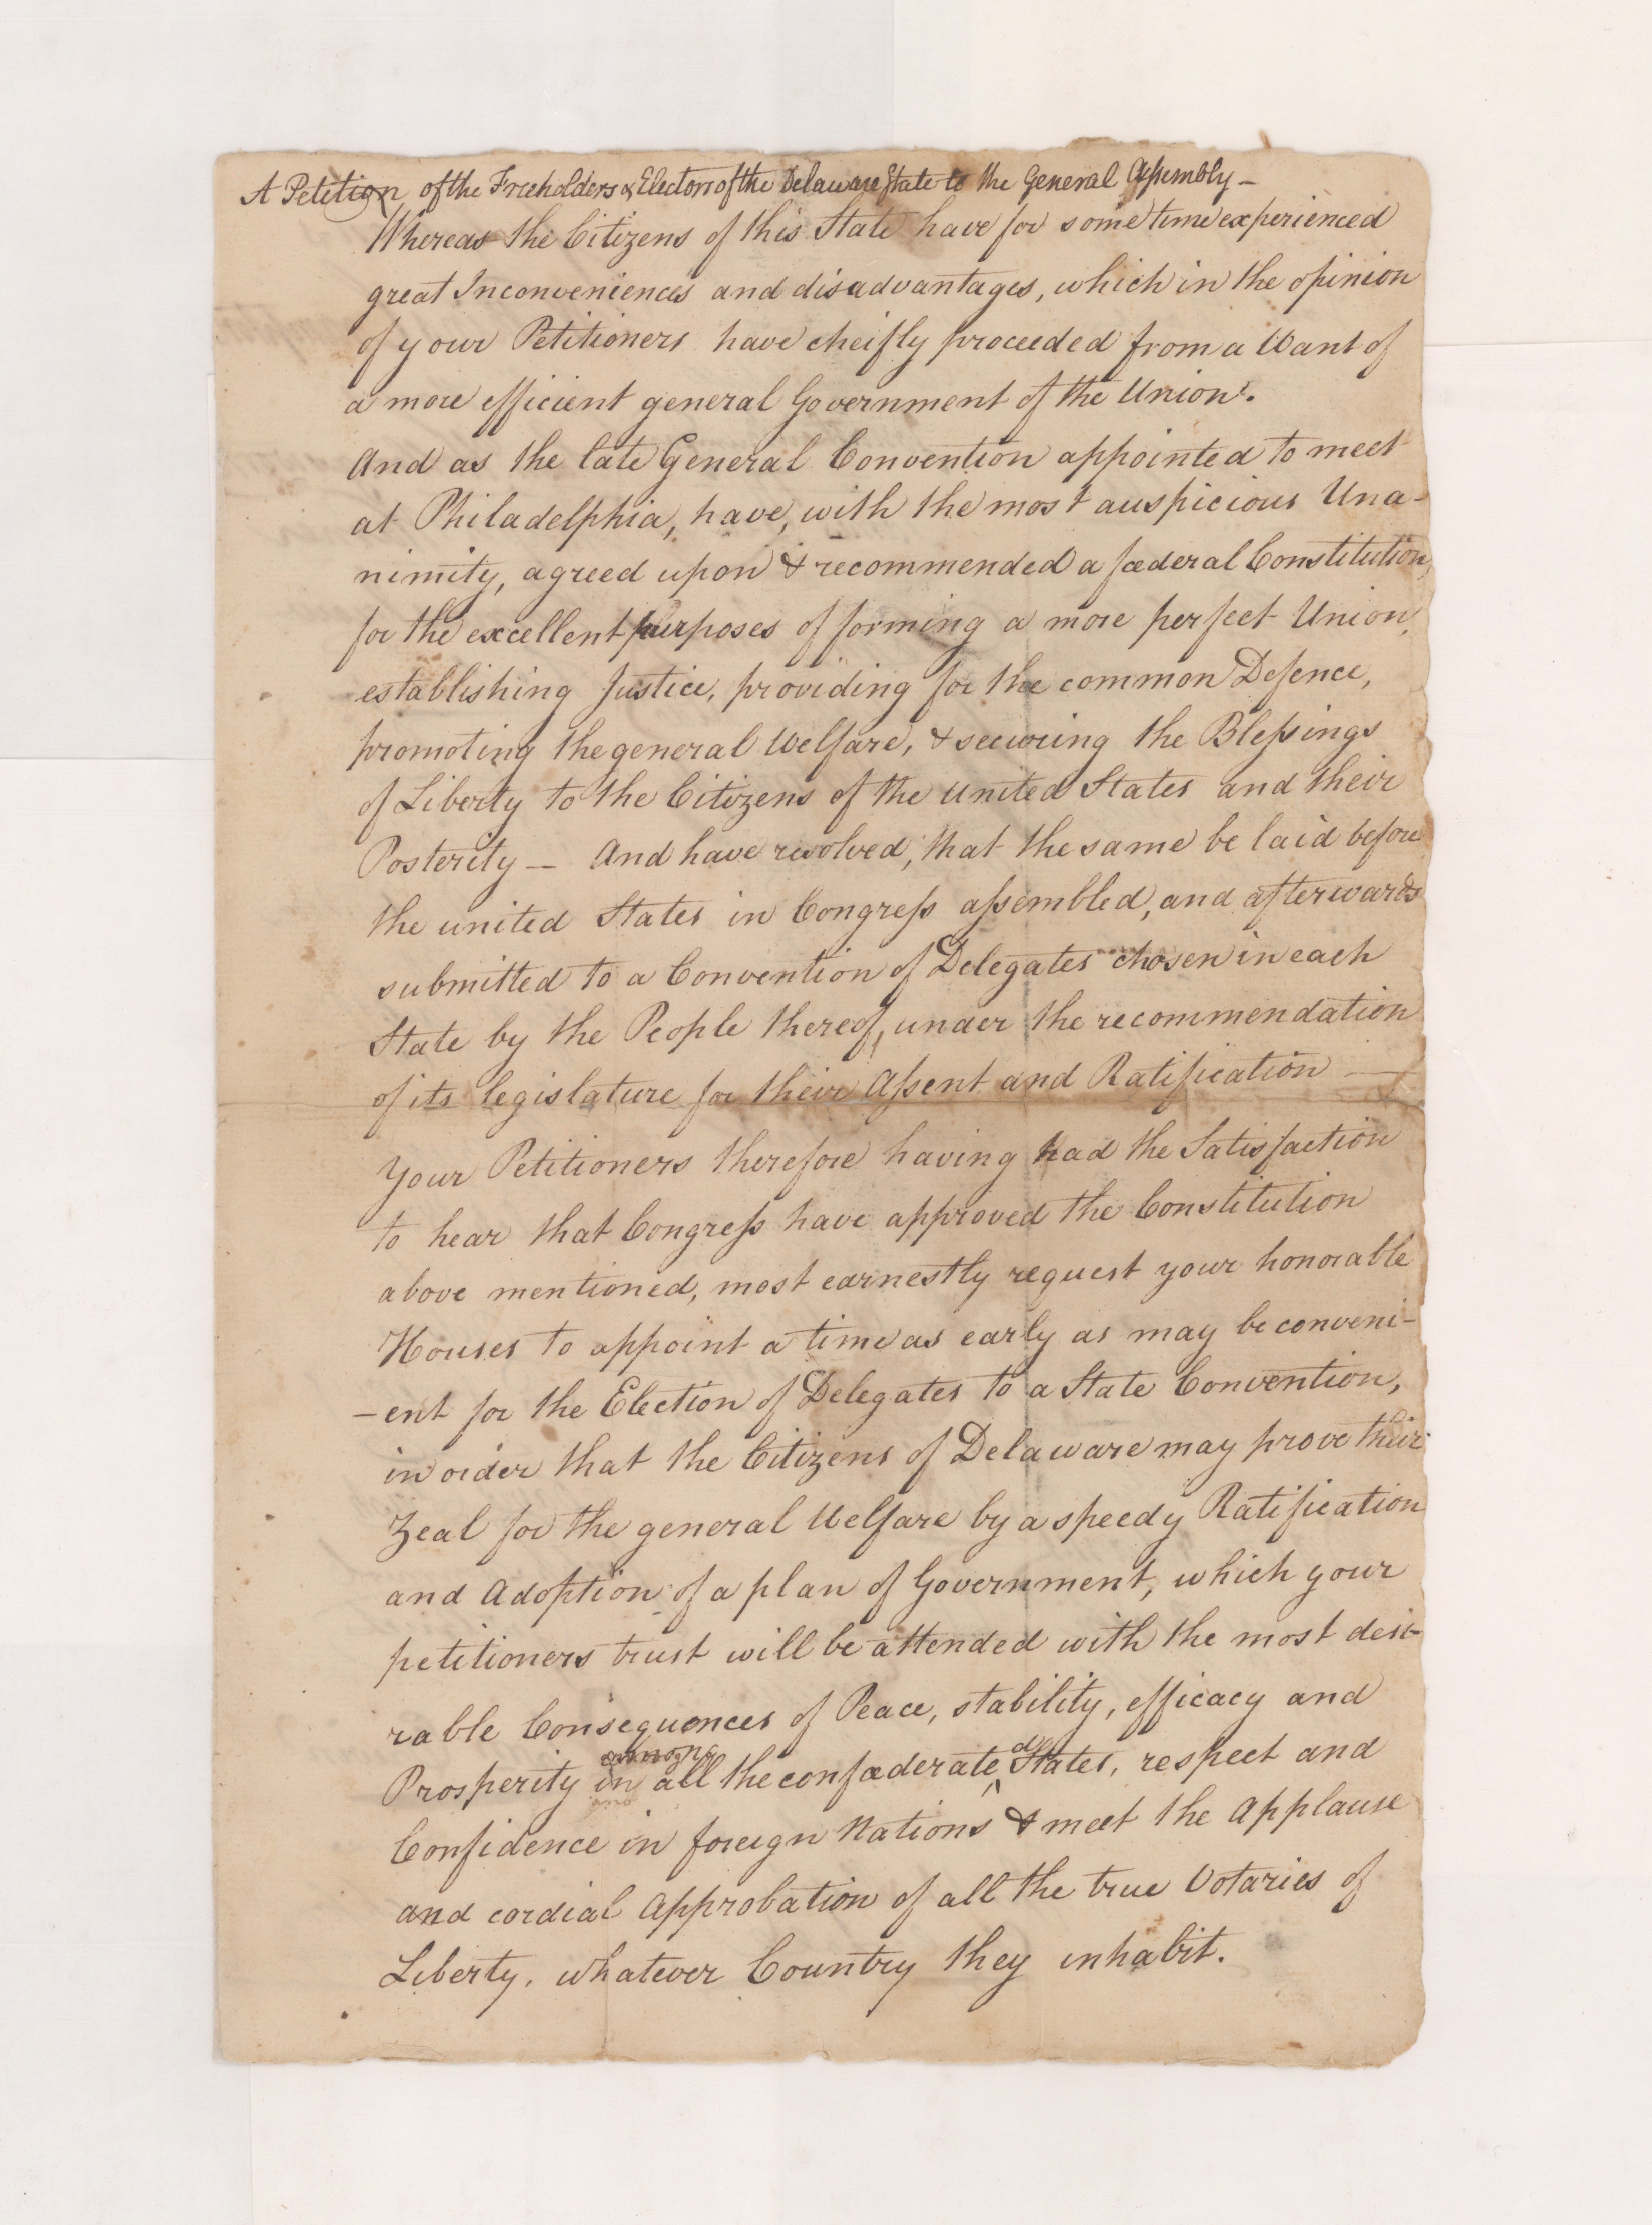 A Petition of the Freeholders & Electors of the Delaware State to the General Assembly—
Whereas the Citizens of this State have for some time experienced
great Inconveniences and disadvantages, which in the opinion
of your Petitioners have cheifly proceeded from a Want of
a more efficient general Government of the Union.
And as the late General Convention appointed to meet
at Philadelphia, have, with the most auspicious Una-
nimity, agreed upon & recommended a fœderal Constitution,
for the excellent purposes of forming a more perfect Union,
establishing Justice, providing for the common Defence,
promoting the general Welfare, & securing the Blessings
of Liberty to the Citizens of the united States and their
Posterity — And have resolved, that the same be laid before
the united States in Congress assembled, and afterwards
submitted to a Convention of Delegates chosen in each
State by the People thereof, under the recommendation
of its legislature for their Assent and Ratification —
Your Petitioners therefore having had the Satisfaction
to hear that Congress have approved the Constitution
above mentioned, most earnestly request your honorable
Houses to appoint a time as early as may be conveni-
-ent for the Election of Delegates to a State Convention,
in order that the Citizens of Delaware may prove their
Zeal for the general Welfare by a speedy Ratification
and Adoption of a plan of Government, which your
petitioners trust will be attended with the most desi-
rable Consequences of Peace, stability, efficacy and
Prosperity in all the confœderated States, respect and
Confidence in foreign Nations & meet the Applause
and cordial Approbation of all the true Votaries of
Liberty, whatever Country they inhabit.